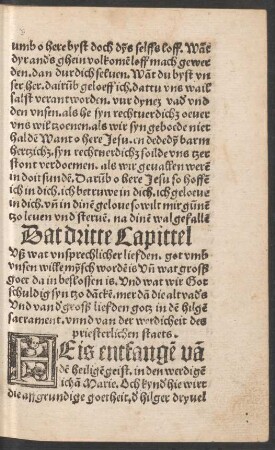 vmb o here byst doch dys selffs loff. Wāt
dyr and's ghein volkomē loff mach gewer
den. dan durch dich seluen. Wāt du byst vn
ser her. dairūb geloeff ich, dattu vns wail
salst verantworden. vur dynez vad vnd
den vnsen. als he syn rechtuerdichz oeuer
vns wil tzoenen. als wir syn geboede niet
haldē Want o here Jesu. en dededy barm
hertzichz. syn rechtuerdichz solde vns tzer
stont verdoemen. als wir geuallen werē
in doit sunde. Darūb o here Jesu so hoffē
ich in dich. ich betruwe in dich. ich geloeue
in dich. vn̄ in dinē geloue so wilt mir gūnē
tzo leuen vnd steruē. na dinē walgefallē
Dat dritte Capittel
Vß wat vnsprechlicher liefden. got vmb
vnsen wille mȳsch wordē is Vn̄ wat groß
goet da in beslossen is. Vnd wat wir Got
schuldig syn tzo dāckē. mer dā die altvad's
Vnd van d' groß liefden gotz in dē hilgē
sacrament. vnnd van der werdicheit des
priesterlichen staets.
HEis entfangē vā
dē heiligē geist. in den werdigē
ichā Marie. Och kynd hie wirt
die affgrundige gotheit, d' hilger dryuel